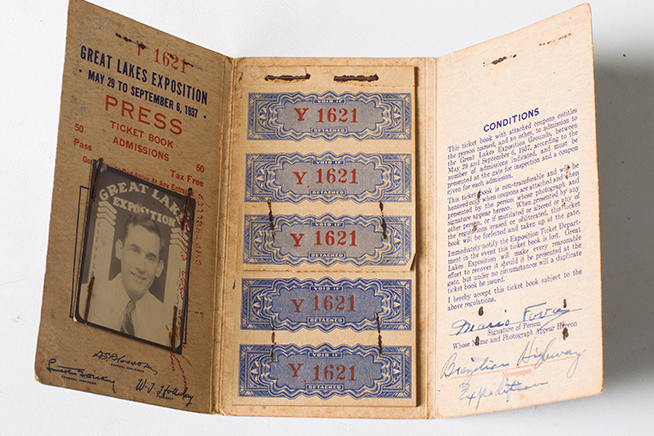 Y 1621
GREAT LAKES EXPOSITION
MAY 29 TO SEPTEMBER 6, 1937
PRESS
TICKET BOOK
ADMISSIONS
50 50
Pass Tax Free
Good at Any Entrance
GREAT LAKES
EXPOSITION
VOID IF
Y 1621
DETACHED
VOID IF
Y 1621
DETACHED
VOID IF
Y 1621
DETACHED
VOID IF
Y 1621
DETACHED
VOID IF
Y 1621
DETACHED
CONDITIONS
This ticket book with attached coupons entitles
the person named, and no other, to admission to
the Great Lakes Exposition Grounds, between
May 29 and September 6, 1937, according to the
number of admissions indicated, and must be
presented at the gate for inspection and a coupon
given for each admission.
This ticket book is non-transferable and will be
honored only when coupons are attached and when
presented by the person whose photograph and
signature appear hereon. When presented by any
other person, or if mutilated or altered or any of
the regulations erased or obliterated, this ticket
book will be forfeited and taken up at the gate.
Immediately notify the Exposition Ticket Depart-
ment in the event this ticket book is lost. Great
Lakes Exposition will make every reasonable
effort to recover it should it be presented at the
gate, but under no circumstances will a duplicate
ticket book be issued.
I hereby accept this ticket book subject to the
above regulations.
Mario Fova
Signature of Person
Whose Name and Photograph Appear Hereon
Brazilian Highway
Newspaper
Expedition